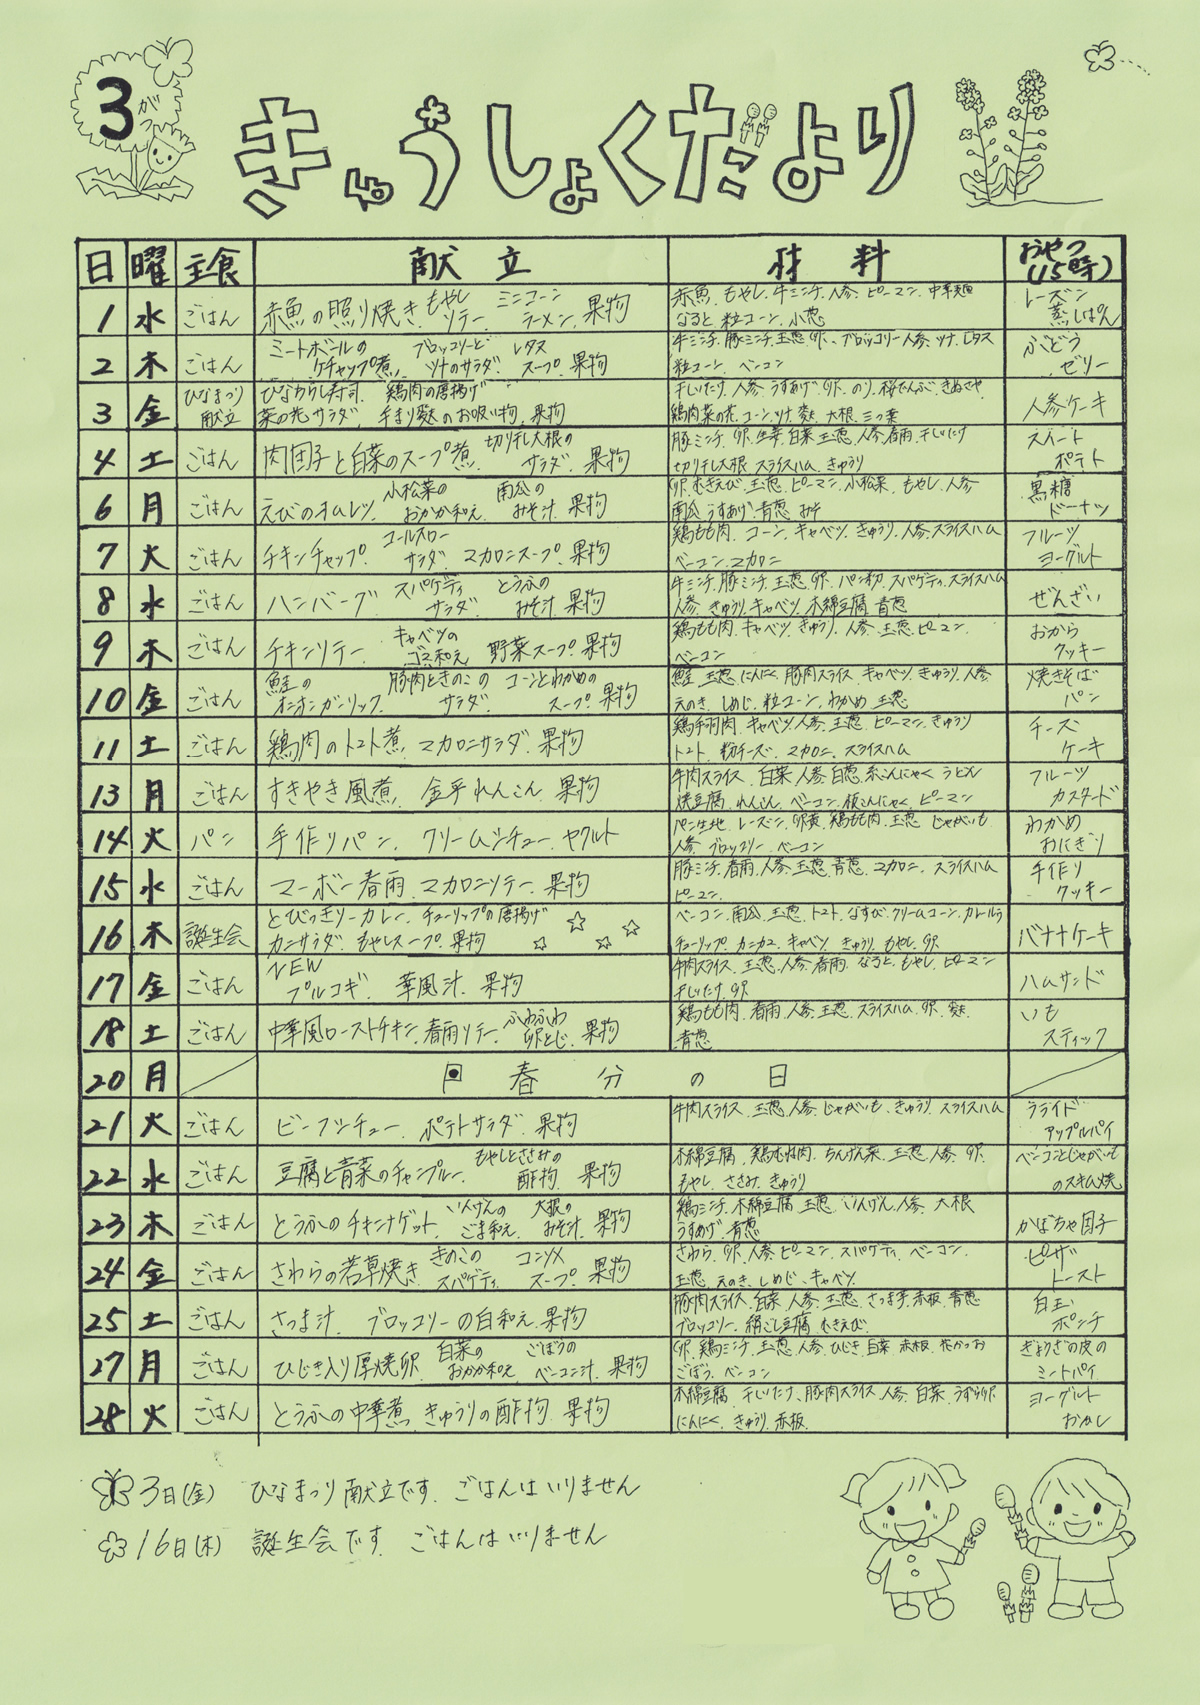 3がつ
きゅうしょくだより
日 曜 主食 献立 材料 おやつ(15時)
1 水 ごはん 赤魚の照り焼き. もやしソテー. ミニコーンラーメン. 果物 赤魚. もやし. 牛ミンチ. 人参. ピーマン. 中華麺 なると. 粒コーン. 小葱 レーズン蒸しぱん
2 木 ごはん ミートボールのケチャップ煮. ブロッコリーとツナのサラダ. レタススープ. 果物 牛ミンチ. 豚ミンチ. 玉葱. 卵. ブロッコリー. 人参. ツナ. レタス 粒コーン. ベーコン ぶどうゼリー
3 金 ひなまつり献立 ひなちらし寿司. 鶏肉の唐揚げ 菜の花サラダ. 手まり麩のお吸い物. 果物 干しいたけ. 人参. うすあげ. 卵. のり. 桜でんぶ. きぬさや 鶏肉. 菜の花. コーン. ツナ. 麩. 大根. 三つ葉 人参ケーキ
4 土 ごはん 肉団子と白菜のスープ煮. 切り干し大根のサラダ. 果物 豚ミンチ. 卵. 生姜. 白菜. 玉葱. 人参. 春雨. 干しいたけ 切り干し大根. スライスハム. きゅうり スイートポテト
6 月 ごはん えびのオムレツ. 小松菜のおかか和え. 南瓜のみそ汁. 果物 卵. むきえび. 玉葱. ピーマン. 小松菜. もやし. 人参 南瓜. うすあげ. 青葱. みそ 黒糖ドーナツ
7 火 ごはん チキンチャップ. コールスローサラダ. マカロニスープ. 果物 鶏もも肉. コーン. キャベツ. きゅうり. 人参. スライスハム ベーコン. マカロニ フルーツヨーグルト
8 水 ごはん ハンバーグ. スパゲティサラダ. とうふのみそ汁. 果物 牛ミンチ. 豚ミンチ. 玉葱. 卵. パン粉. スパゲティ. スライスハム 人参. きゅうり. キャベツ. 木綿豆腐. 青葱 ぜんざい
9 木 ごはん チキンソテー. キャベツのゴマ和え. 野菜スープ. 果物 鶏もも肉. キャベツ. きゅうり. 人参. 玉葱. ピーマン. ベーコン おからクッキー
10 金 ごはん 鮭のオニオンガーリック. 豚肉ときのこのサラダ. コーンとわかめのスープ. 果物 鮭. 玉葱. にんにく. 豚肉スライス. キャベツ. きゅうり. 人参 えのき. しめじ. 粒コーン. わかめ. 玉葱 焼きそばパン
11 土 ごはん 鶏肉のトマト煮. マカロニサラダ. 果物 鶏手羽肉. キャベツ. 人参. 玉葱. ピーマン. きゅうり トマト. 粉チーズ. マカロニ. スライスハム チーズケーキ
13 月 ごはん すきやき風煮. 金平れんこん. 果物 牛肉スライス. 白菜. 人参. 白葱. 糸こんにゃく. うどん 焼豆腐. れんこん. ベーコン. 板こんにゃく. ピーマン フルーツカスタード
14 火 パン 手作りパン. クリームシチュー. ヤクルト パン生地. レーズン. 卵黄. 鶏もも肉. 玉葱. じゃがいも 人参. ブロッコリー. ベーコン わかめおにぎり
15 水 ごはん マーボー春雨. マカロニソテー. 果物 豚ミンチ. 春雨. 人参. 玉葱. 青葱. マカロニ. スライスハム ピーマン. 手作りクッキー
16 木 誕生会 とびっきりーカレー. チューリップの唐揚げ カニサラダ. もやしスープ. 果物 ベーコン. 南瓜. 玉葱. トマト. なすび. クリームコーン. カレールウ チューリップ. カニカマ. キャベツ. きゅうり. もやし. 卵 バナナケーキ
17 金 ごはん NEW プルコギ. 華風汁. 果物 牛肉スライス. 玉葱. 人参. 春雨. なると. もやし. ピーマン 干しいたけ. 卵 ハムサンド
18 土 ごはん 中華風ローストチキン. 春雨ソテー. ふわふわ卵とじ. 果物 鶏もも肉. 春雨. 人参. 玉葱. スライスハム. 卵. 麩. 青葱 いもスティック
20 月 春分の日
21 火 ごはん ビーフシチュー. ポテトサラダ. 果物 牛肉スライス. 玉葱. 人参. じゃがいも. きゅうり. スライスハム フライドアップルパイ
22 水 ごはん 豆腐と青菜のチャンプルー. もやしとささみの酢物. 果物 木綿豆腐. 鶏むね肉. ちんげん菜. 玉葱. 人参. 卵. もやし. ささみ. きゅうり ベーコンとじゃがいものスキム焼
23 木 ごはん とうふのチキンナゲット. いんげんのごま和え. 大根のみそ汁. 果物 鶏ミンチ. 木綿豆腐. 玉葱. いんげん. 人参. 大根 うすあげ. 青葱 かぼちゃ団子
24 金 ごはん さわらの若草焼き. きのこのスパゲティ. コンソメスープ. 果物 さわら. 卵. 人参. ピーマン. スパゲティ. ベーコン. 玉葱. えのき. しめじ. キャベツ ピザトースト
25 土 ごはん さつま汁. ブロッコリーの白和え. 果物 豚肉スライス. 白菜. 人参. 玉葱. さつま芋. 赤板. 青葱 ブロッコリー. 絹ごし豆腐. むきえび. 白玉ポンチ
27 月 ごはん ひじき入り厚焼卵. 白菜のおかか和え. ごぼうのベーコン汁. 果物 卵. 鶏ミンチ. 玉葱. 人参. ひじき. 白菜. 赤板. 花かつお ごぼう. ベーコン ぎょうざの皮のミートパイ
28 火 ごはん とうふの中華煮. きゅうりの酢物. 果物 木綿豆腐. 干しいたけ. 豚肉スライス. 人参. 白菜. うずら卵 にんにく. きゅうり. 赤板. ヨーグルトおかし
3日(金) ひなまつり献立です. ごはんはいりません
16日(木) 誕生会です. ごはんはいりません